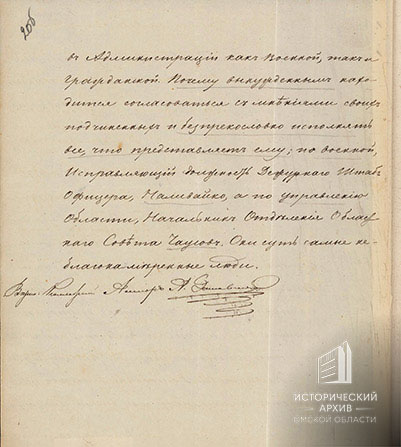 въ Администраціи какъ Военной, такъ и
Гражданской. Почему вынужденнымъ нахо-
дится согласоваться съ мнѣніями своихъ
подчиненныхъ и безпрекословно исполнять
все, что представляетъ ему; по военной,
Исправляющій должность Дежурнаго Штабъ
Офицера, Наливайко, а по управленію
Области, Начальникъ Отдѣленія Облас-
наго Совѣта Чаусовъ. Они суть самые не-
благонамѣренные люди.
А.
ИСТОРИЧЕСКИЙ
АРХИВ
ОМСКОЙ ОБЛАСТИ